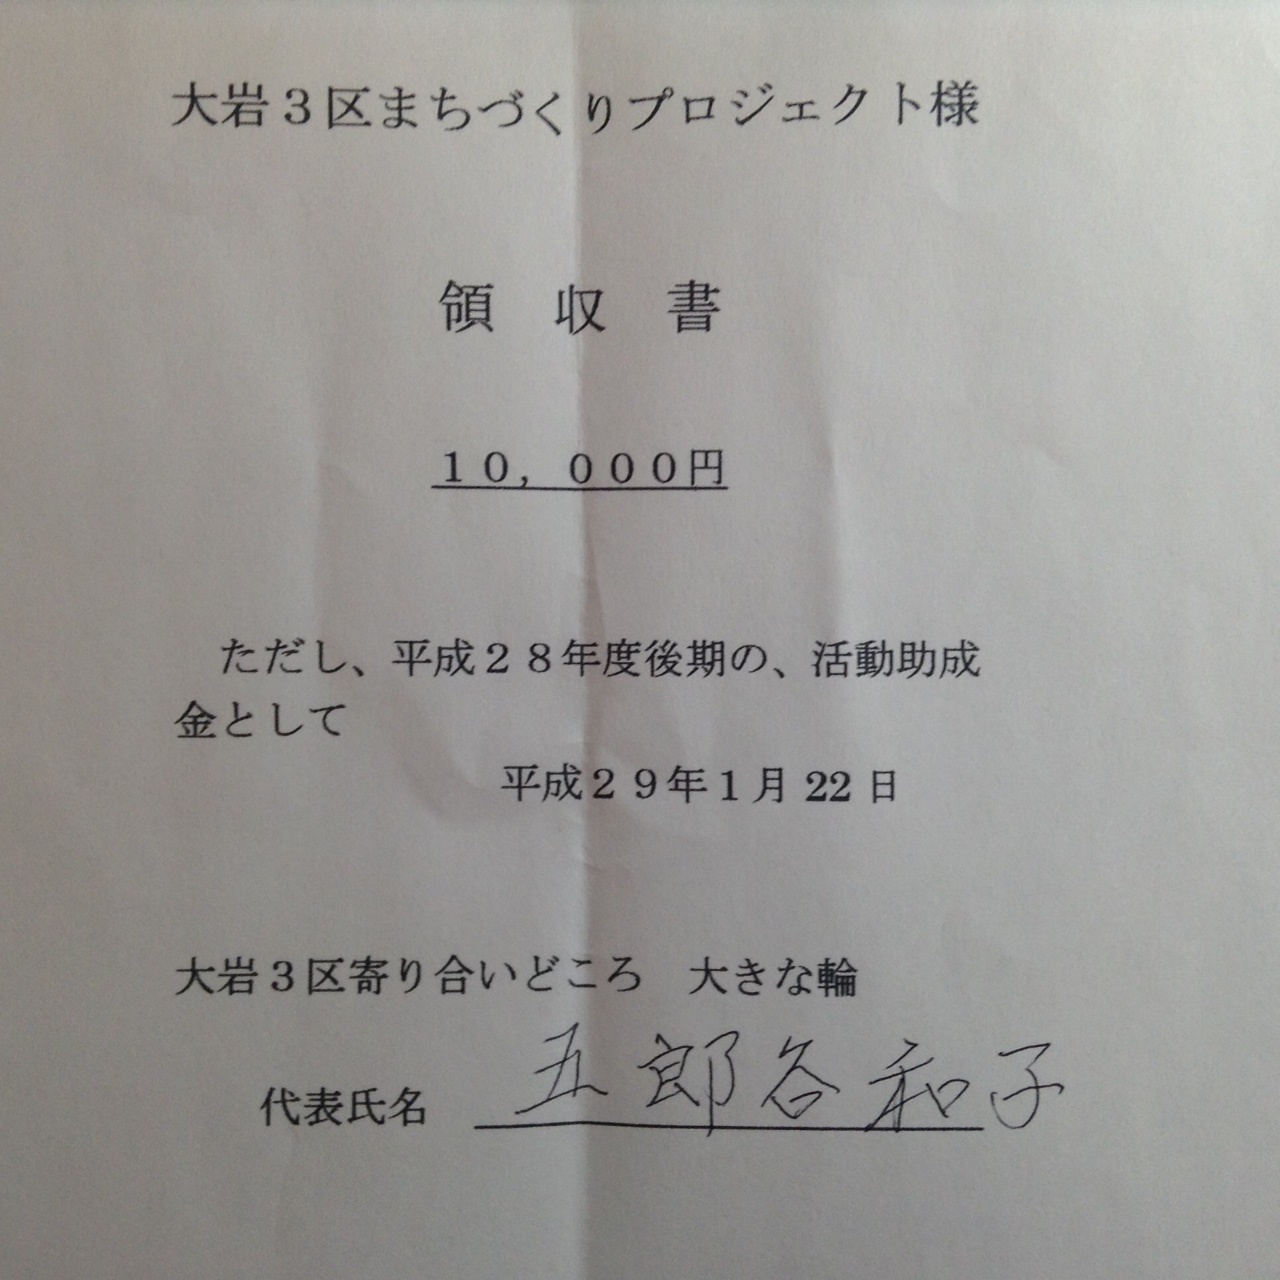 大岩３区まちづくりプロジェクト様
領　収　書
１０，０００円
ただし、平成２８年度後期の、活動助成
金として
平成２９年１月 22 日
大岩３区寄り合いどころ　大きな輪
代表氏名　五郎谷和子